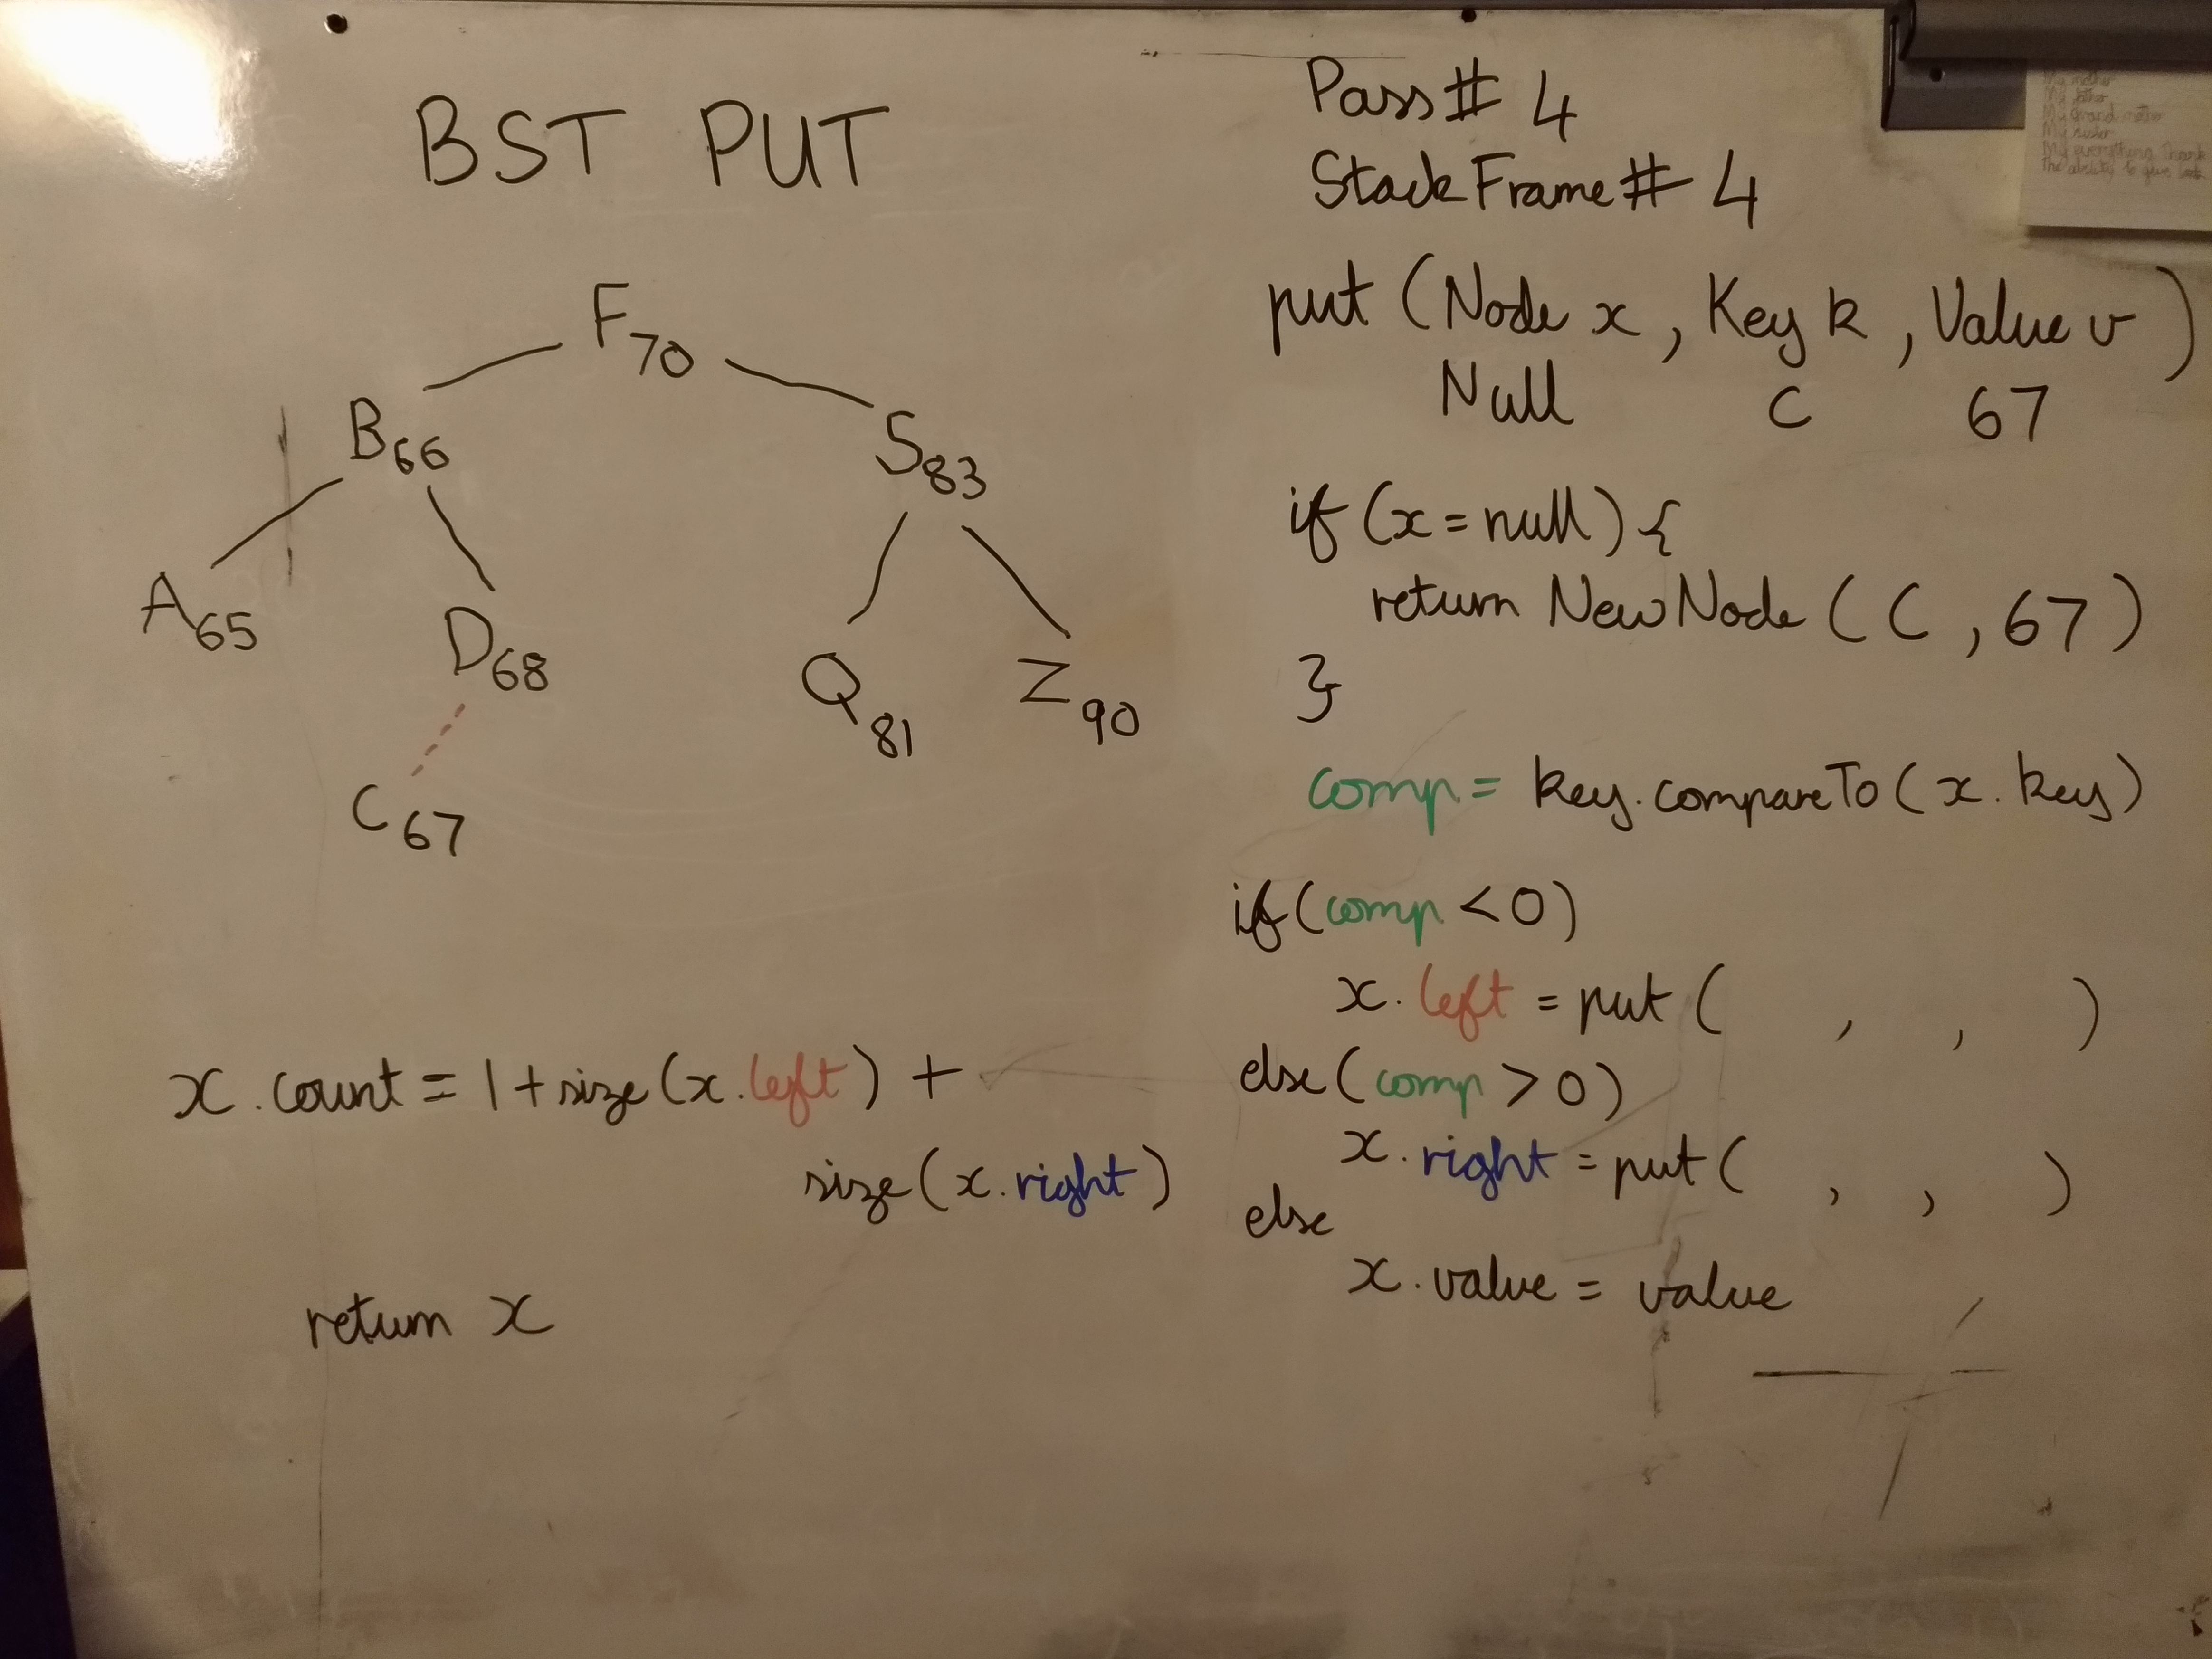 BST PUT
F 70
B 66
S 83
A 65
D 68
Q 81
Z 90
C 67
x.count = 1 + size(x.left) +
size(x.right)
return x
Pass# 4
StackFrame# 4
put (Node x, Key k, Value v)
Null C 67
if (x = null) {
return NewNode (C, 67)
}
comp = key.compareTo(x.key)
if (comp < 0)
x.left = put ( , , )
else (comp > 0)
x.right = put ( , , )
else
x.value = value
My mother
My
My Grand mother
My sister
My everything Thank
the ability to give